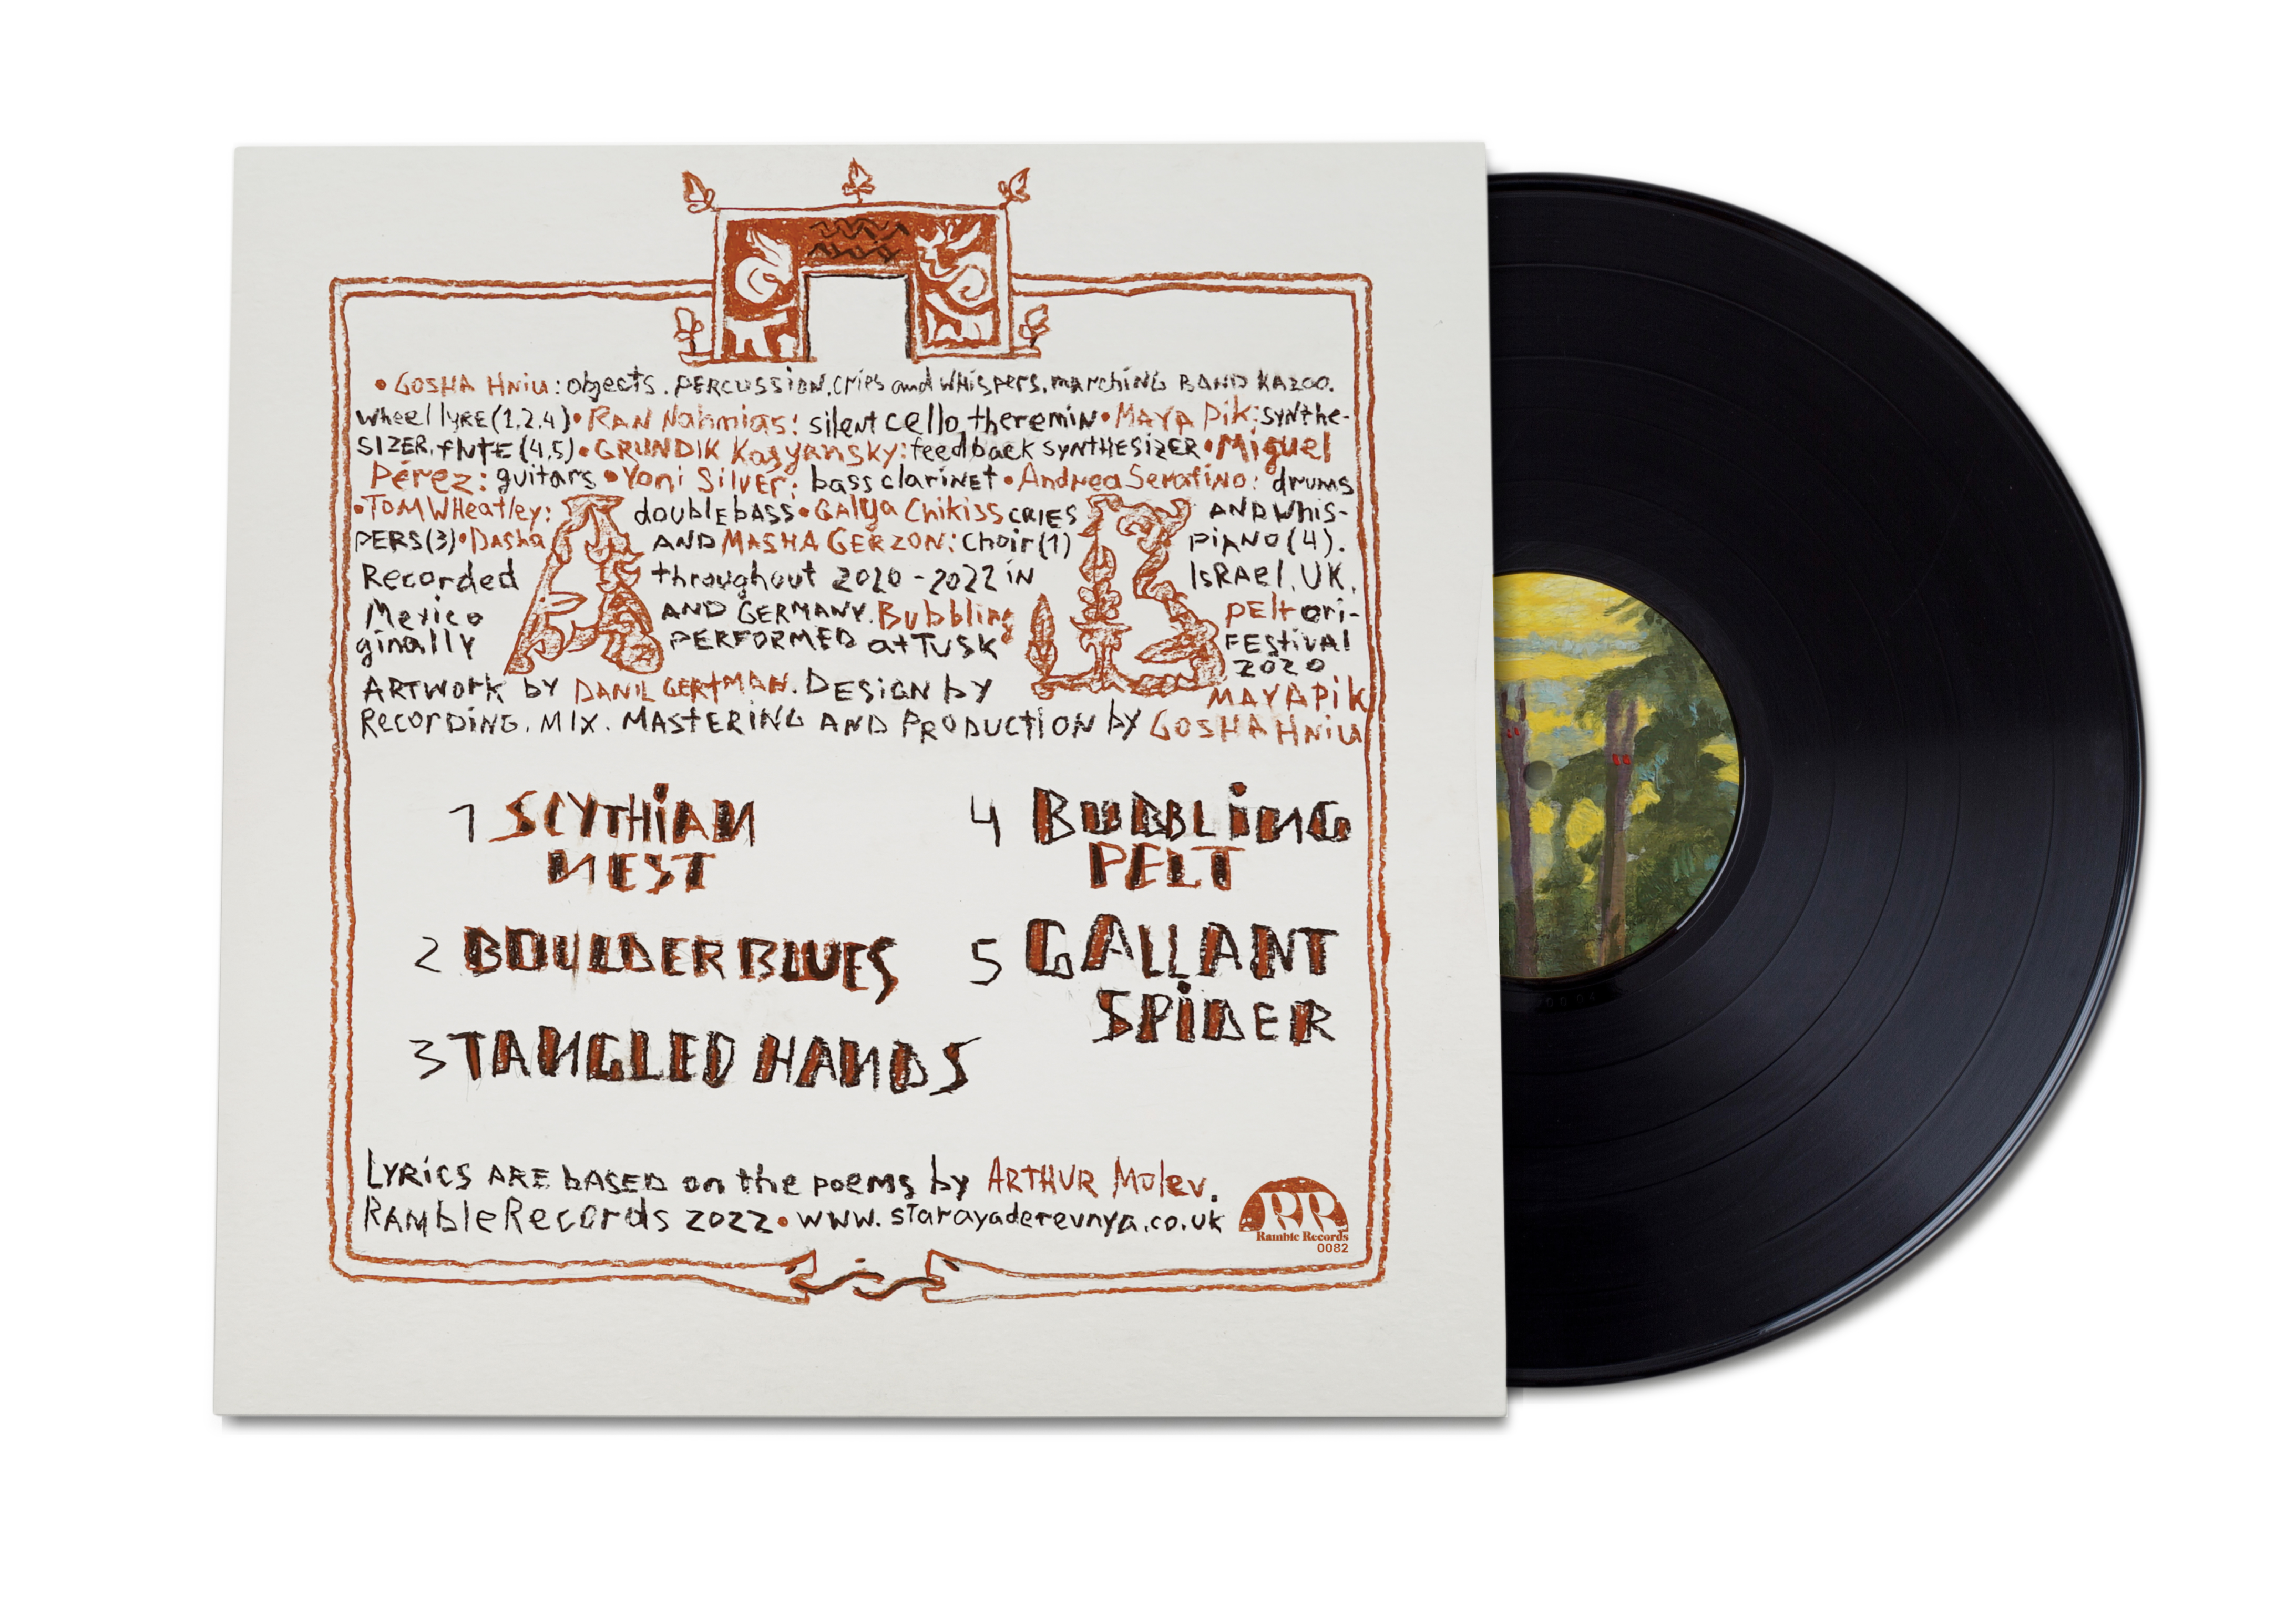 • GOSHA HNiu: objects. PERCUSSION, cries and WHISPERS, marching BAND KAZOO.
wheel lyRE (1,2,4) • RAN Nahmias: silent cello, theremin • MAYA Pik: synthe-
SIZER, flUTE (4,5) • GRUNDIK Kasyansky: feedback SYNTHESIZER • Miguel
Pérez: guitars • Yoni SilvEr: bass clariNEt • Andrea Serafino: drums
• TOM WHeatley: doublE bASS • GAlya Chikiss CRIES AND Whis-
PERS (3) • Dasha AND MASHA GERZON: Choir (1) piANO (4).
Recorded throughout 2020 - 2022 iN ISRAEl, UK,
Mexico AND GERMANY. Bubbling pElt ori-
ginally PERFORMED at TUSK FEStivAl
2020
ARTWork by DANIL GERTMAN. DESIGN by MAYA Pik
RECORDING, MIX, MASTERING AND PRODUCTION by GOSHA HNiu
1 SCYTHiAN
NEST
2 BOULDER BLUES
3 TANGLED HANDS
4 BUBBLiNG
PELT
5 GALLANT
SPiDER
LYRICS ARE bASED on the poems by ARTHUR Molev.
RAMble Records 2022 • www.starayaderevnya.co.uk
RR
Ramble Records
0082